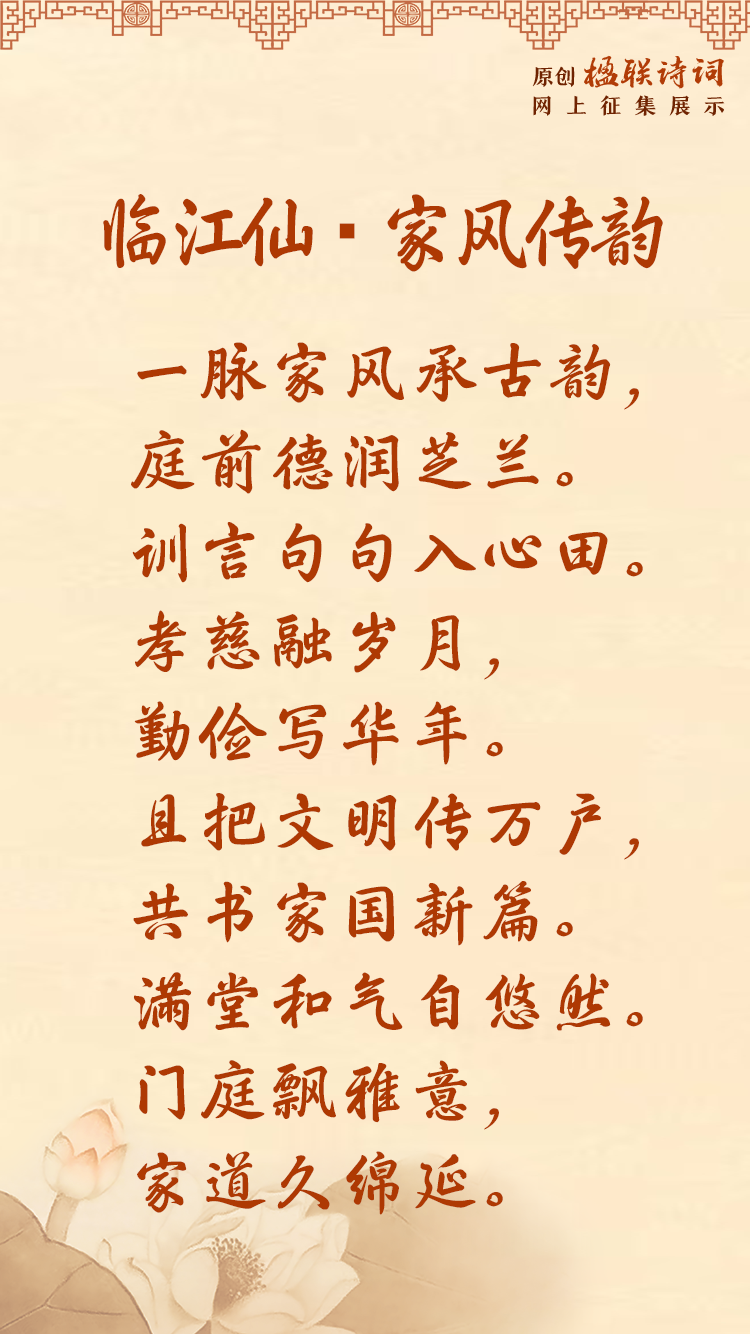 原创 楹联诗词
网上征集展示
临江仙·家风传韵
一脉家风承古韵，
庭前德润芝兰。
训言句句入心田。
孝慈融岁月，
勤俭写华年。
且把文明传万户，
共书家国新篇。
满堂和气自悠然。
门庭飘雅意，
家道久绵延。